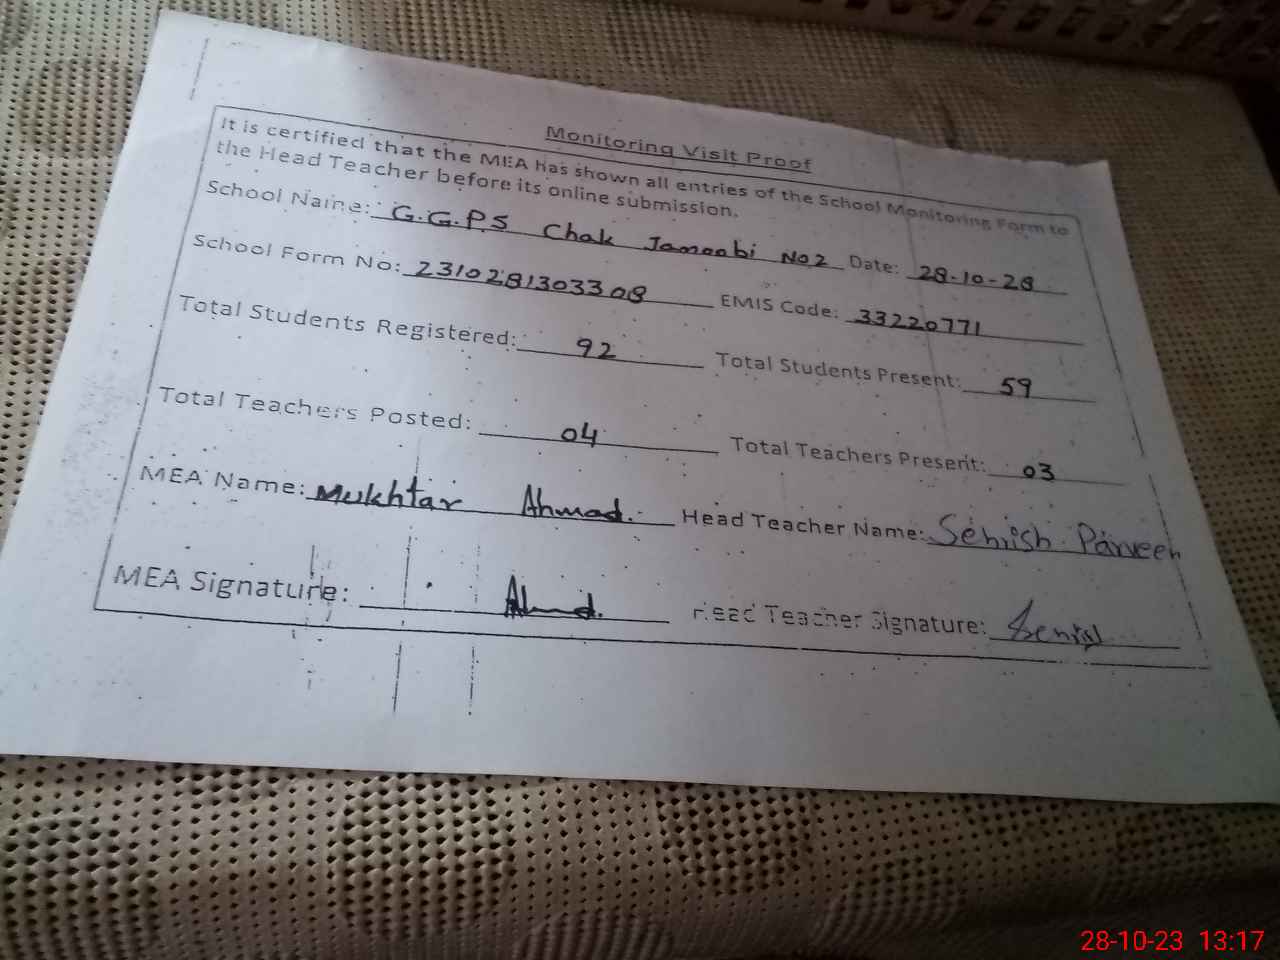 Monitoring Visit Proof
It is certified that the MEA has shown all entries of the School Monitoring Form to
the Head Teacher before its online submission.
School Name: G.G.P.S Chak Janoobi No 2 Date: 28-10-28
School Form No: 2310281303308 EMIS Code: 33220771
Total Students Registered: 92 Total Students Present: 59
Total Teachers Posted: 04 Total Teachers Present: 03
MEA Name: Mukhtar Ahmad. Head Teacher Name: Sehrish Parveen
MEA Signature: Ahmd. Head Teacher Signature:
28-10-23 13:17